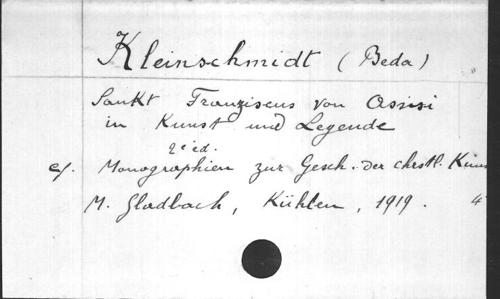 Kleinschmidt (Beda)
Sankt Franziscus von Assisi
in Kunst und Legende
2e ed.
cf. Monographien zur Gesch. der chrstl. Kuns
M. Gladbach, Kühlen, 1919. 4°